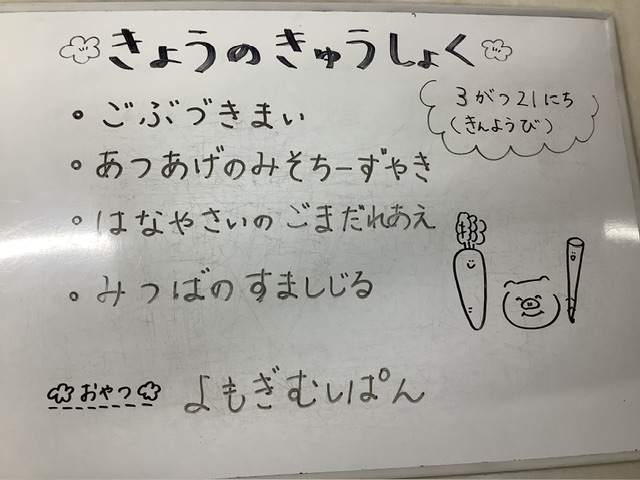 きょうのきゅうしょく
3がつ21にち
(きんようび)
・ごぶづきまい
・あつあげのみそちーずやき
・はなやさいのごまだれあえ
・みつばのすましじる
おやつ よもぎむしぱん